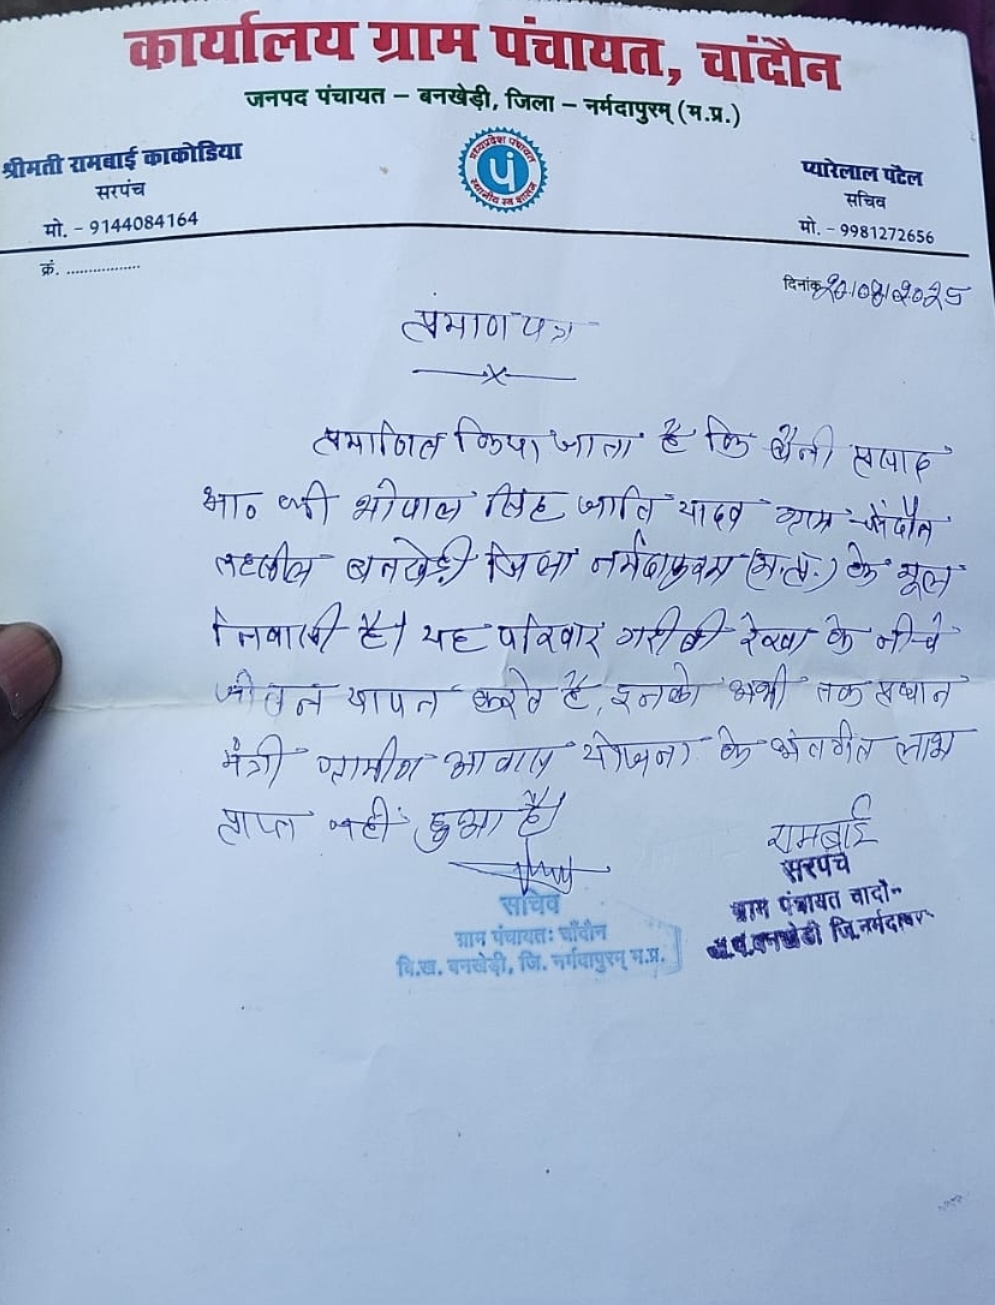 कार्यालय ग्राम पंचायत, चांदौन
जनपद पंचायत – बनखेड़ी, जिला – नर्मदापुरम् (म.प्र.)
श्रीमती रामबाई काकोडिया
सरपंच
मो. - 9144084164
मध्यप्रदेश पंचायत
पं
स्थानीय स्व शासन
प्यारेलाल पटेल
सचिव
मो. - 9981272656
क्रं. .................
दिनांक 2025
प्रमाण पत्र
प्रमाणित किया जाता है कि बैनी प्रसाद
आ० श्री भोपाल सिंह जाति यादव ग्राम चांदौन
तहसील बनखेड़ी जिला नर्मदापुरम (म.प्र.) के मूल
निवासी है। यह परिवार गरीबी रेखा के नीचे
जीवन यापन करते है, इनको अभी तक प्रधान
मंत्री ग्रामीण आवास योजना के अंतर्गत लाभ
प्राप्त नहीं हुआ है।
रामबाई
सरपंच
ग्राम पंचायत चादौन
ज.पं.बनखेडी जि.नर्मदापुर
सचिव
ग्राम पंचायतः चाँदौन
वि.ख. बनखेड़ी, जि. नर्मदापुरम् म.प्र.